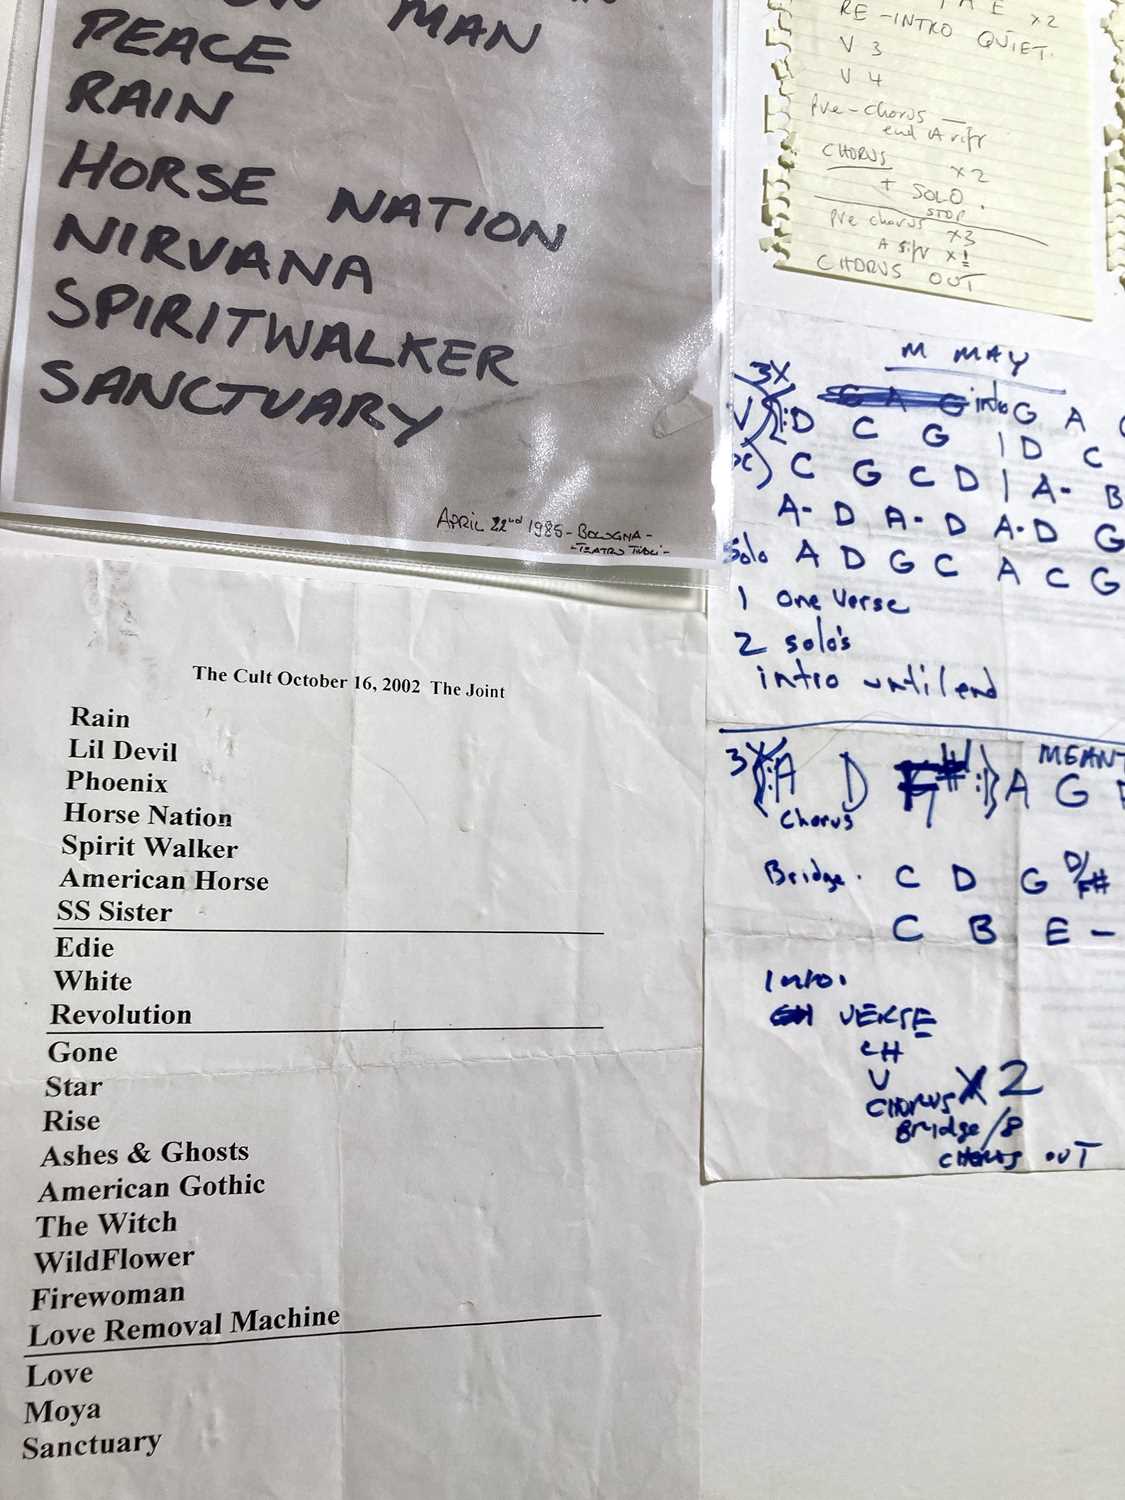 MAN
PEACE
RAIN
HORSE NATION
NIRVANA
SPIRITWALKER
SANCTUARY
APRIL 22nd 1985 - BOLOGNA -
- TEATRO TIVOLI -
x2
RE-INTRO QUIET.
V 3
V 4
Pre-Chorus
end A riff
CHORUS x2
+ SOLO.
STOP
Pre chorus x3
A riff x1
CHORUS OUT
M MAY
3X
G A G intro G A
V {:D C G | D C
C G C D | A- B
A- D A- D A-D G
Solo A D G C A C G
1 one verse
2 solo's
intro until end
MEANT
3X {:A D F#:} A G
Chorus
Bridge. C D G D/F#
C B E-
Intro.
VERSE
CH
V
CHORUS X 2
Bridge/8
CHORUS OUT
The Cult October 16, 2002 The Joint
Rain
Lil Devil
Phoenix
Horse Nation
Spirit Walker
American Horse
SS Sister
Edie
White
Revolution
Gone
Star
Rise
Ashes & Ghosts
American Gothic
The Witch
WildFlower
Firewoman
Love Removal Machine
Love
Moya
Sanctuary